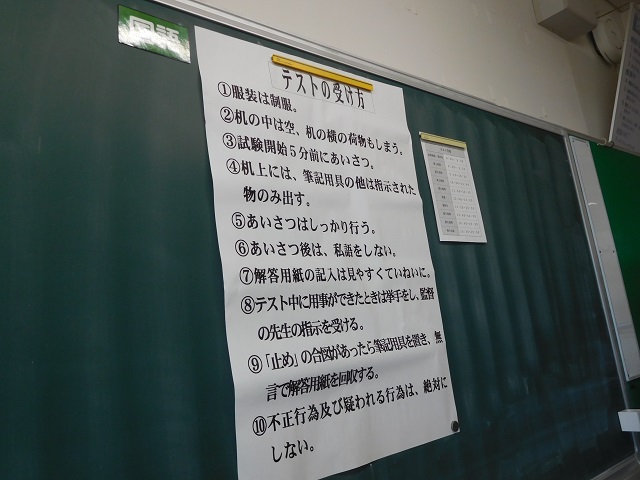 国語
テストの受け方
①服装は制服。
②机の中は空、机の横の荷物もしまう。
③試験開始５分前にあいさつ。
④机上には、筆記用具の他は指示された
物のみ出す。
⑤あいさつはしっかり行う。
⑥あいさつ後は、私語をしない。
⑦解答用紙の記入は見やすくていねいに。
⑧テスト中に用事ができたときは挙手をし、監督
の先生の指示を受ける。
⑨「止め」の合図があったら筆記用具を置き、無
言で解答用紙を回収する。
⑩不正行為及び疑われる行為は、絶対に
しない。